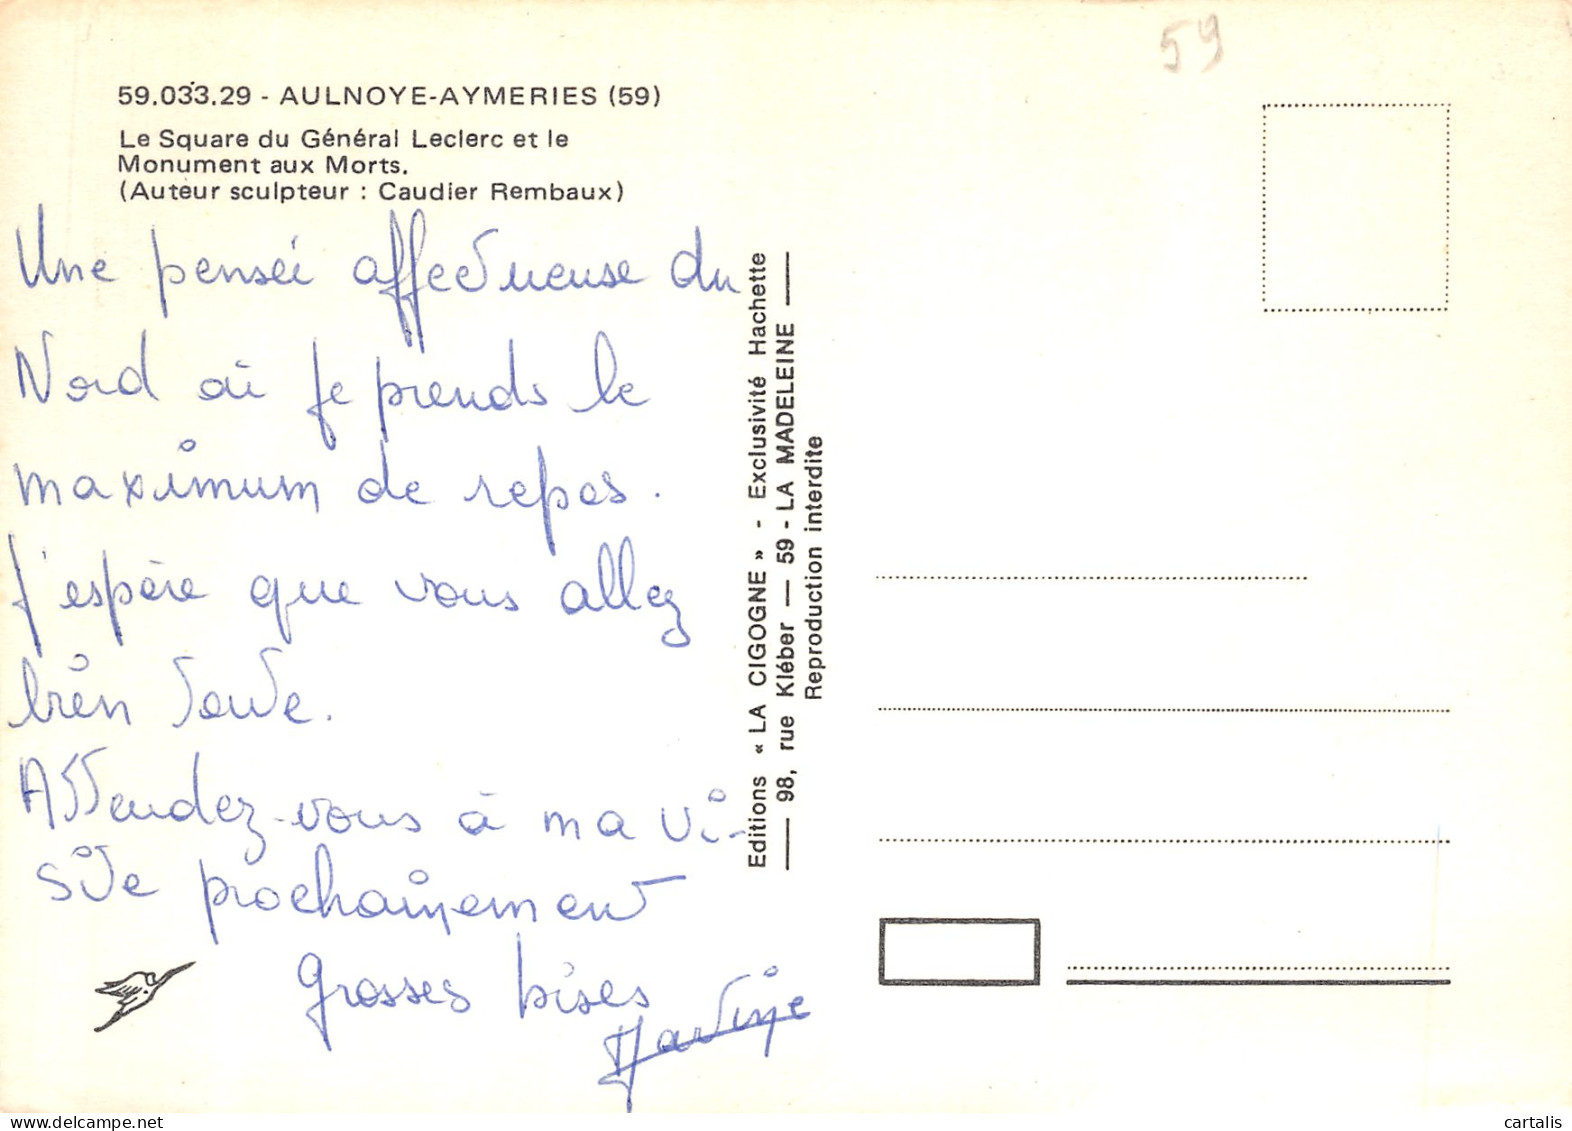 59
59.033.29 - AULNOYE-AYMERIES (59)
Le Square du Général Leclerc et le
Monument aux Morts.
(Auteur sculpteur : Caudier Rembaux)
Une pensée affectueuse du
Nord où je prends le
maximum de repos.
J'espère que vous allez
bien toute.
Attendez-vous à ma vi-
site prochainement
grosses bises
Martine
Editions « LA CIGOGNE » - Exclusivité Hachette
98, rue Kléber — 59 - LA MADELEINE
Reproduction interdite
cartalis